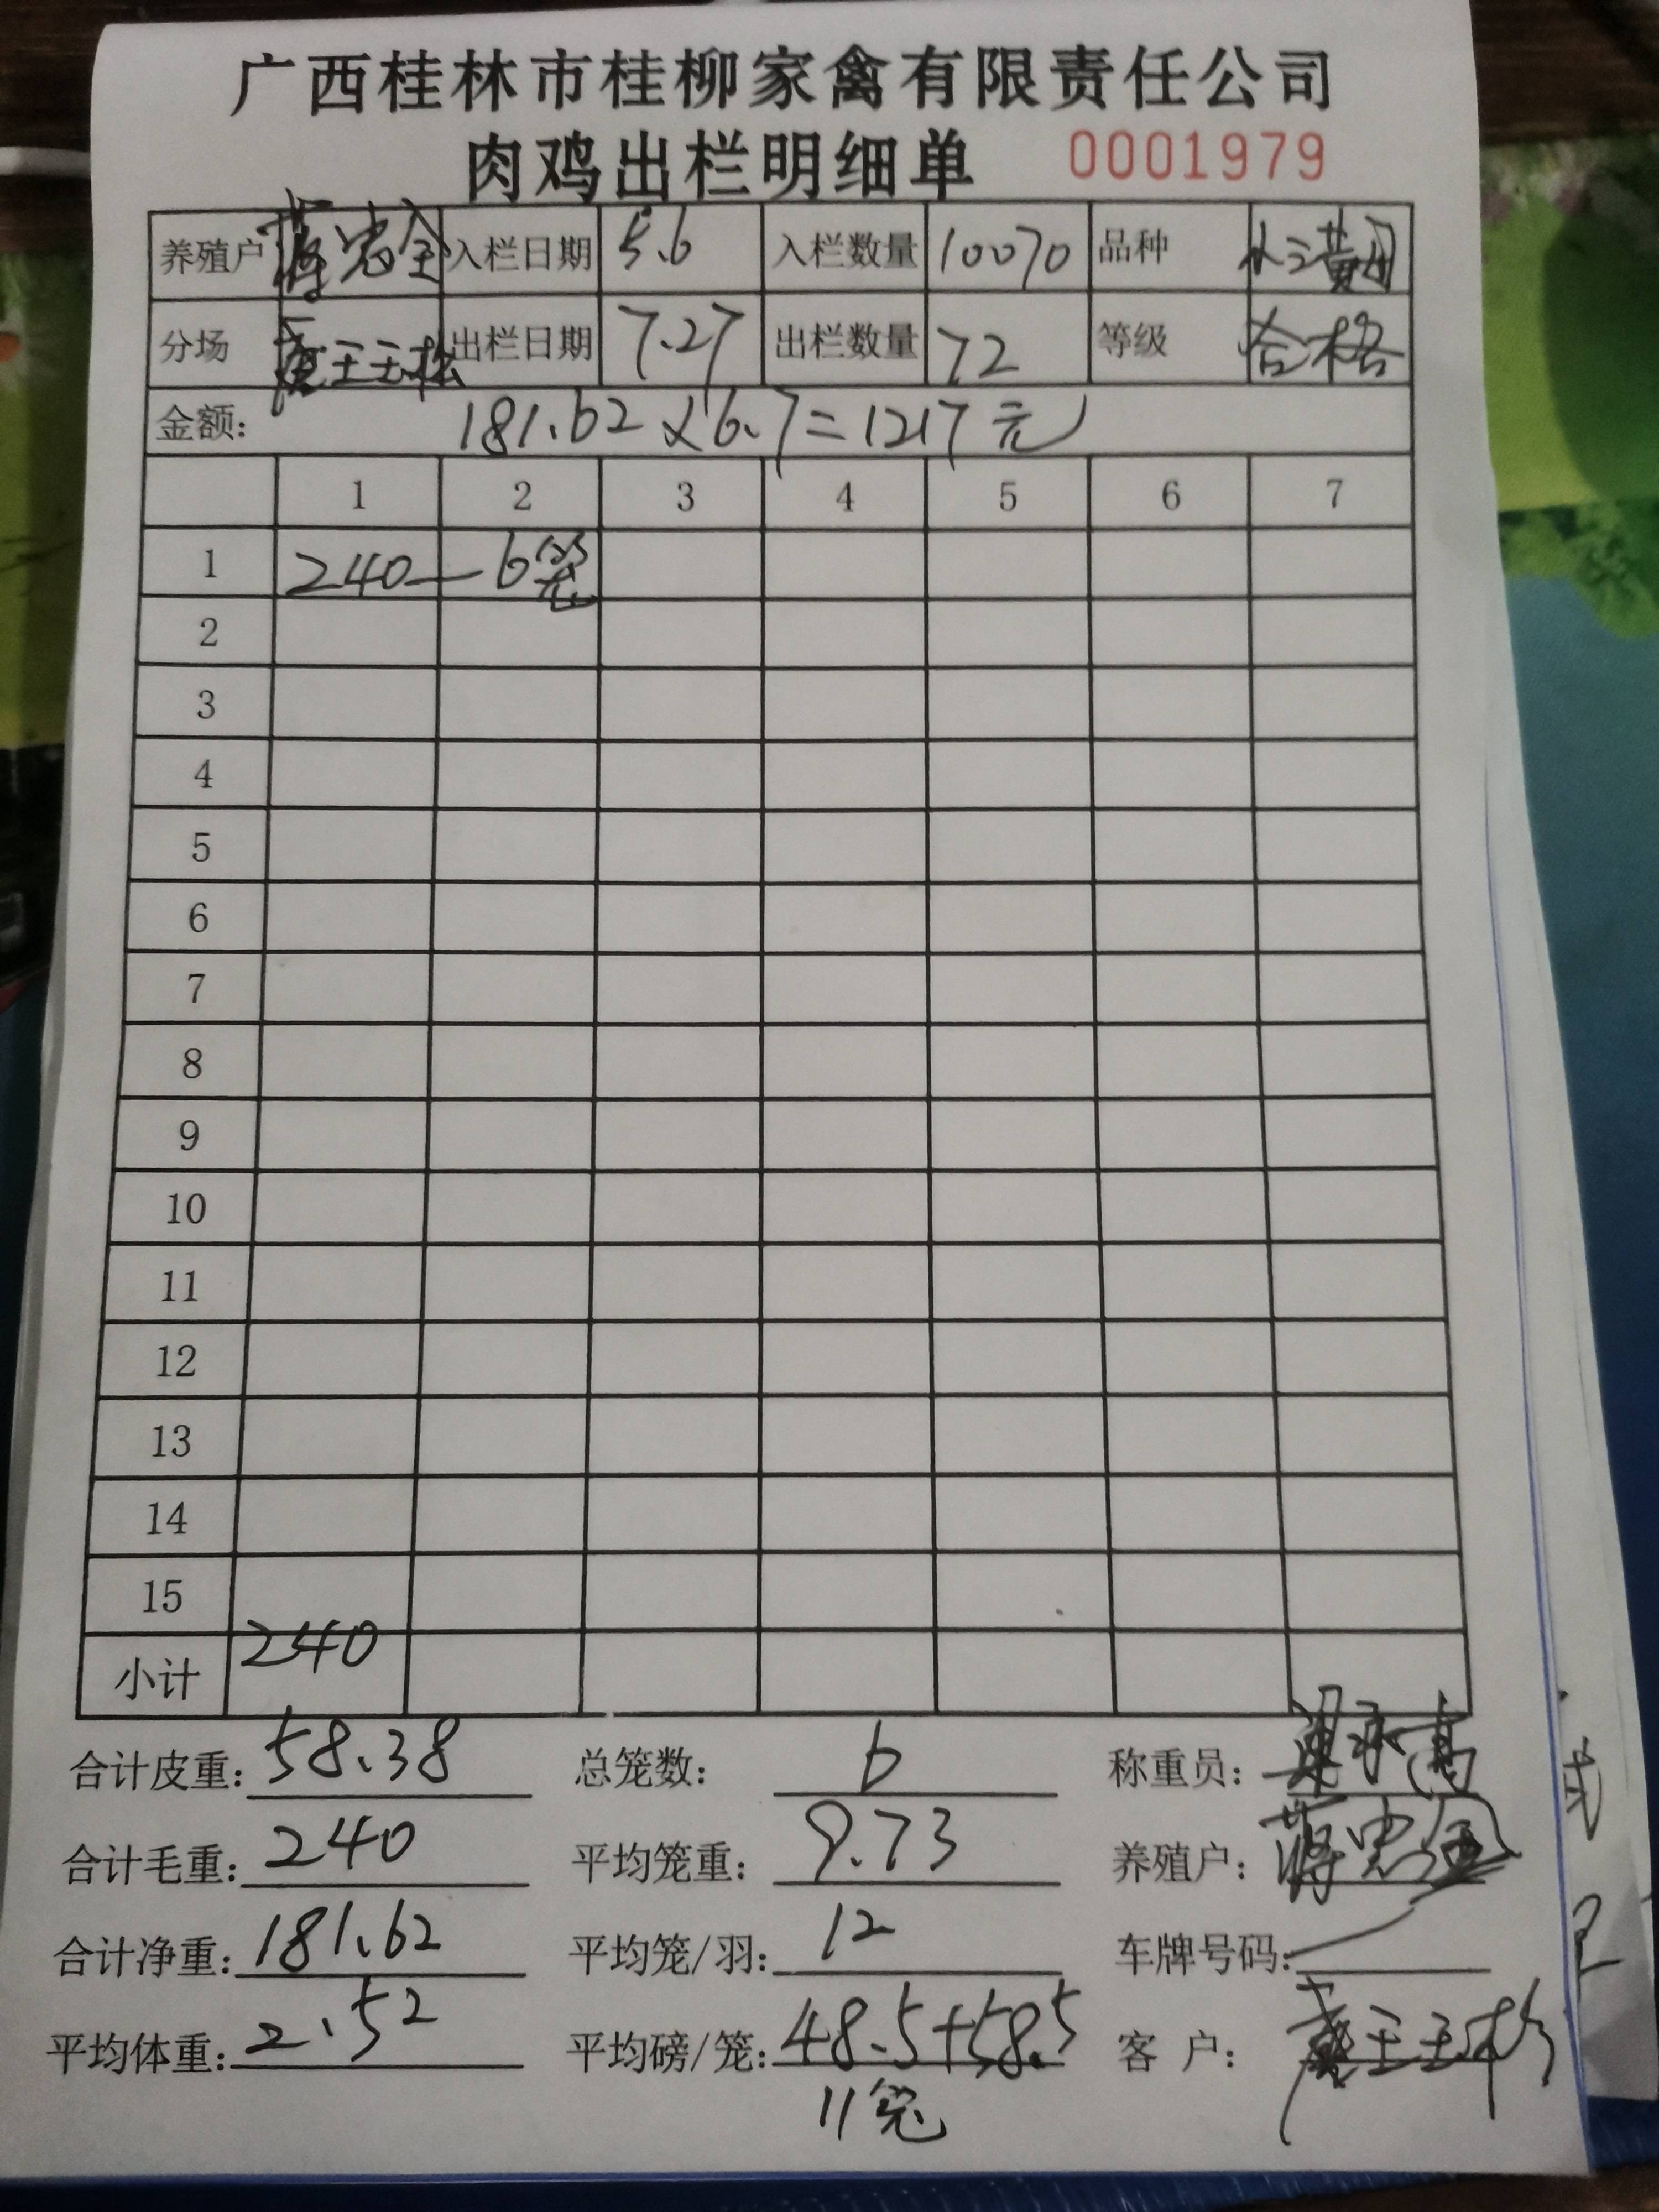 广西桂林市桂柳家禽有限责任公司
肉鸡出栏明细单 0001979
养殖户 蒋忠全 入栏日期 5.6 入栏数量 10070 品种
分场 出栏日期 7.27 出栏数量 72 等级 合格
金额: 181.62×6.7=1217元
1 2 3 4 5 6 7
1 240—6笼
2
3
4
5
6
7
8
9
10
11
12
13
14
15
小计 240
合计皮重: 58.38 总笼数: 6 称重员:
合计毛重: 240 平均笼重: 9.73 养殖户: 蒋忠全
合计净重: 181.62 平均笼/羽: 12 车牌号码:
平均体重: 2.52 平均磅/笼: 48.5+58.5 客 户:
11笼